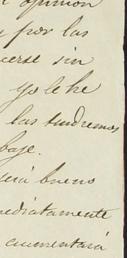 opinion
y por las
verse sin
yo le he
las tendremos
baje.
será bueno
mediatamente
aumentará